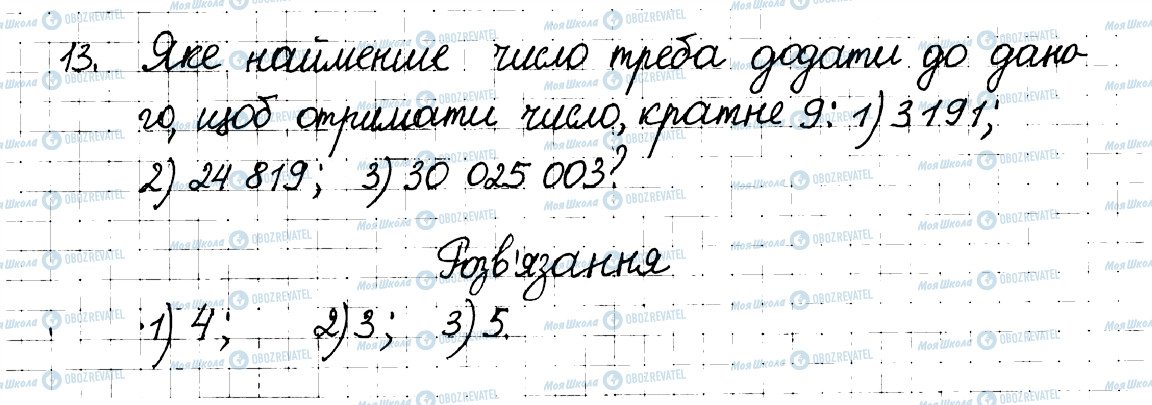 13. Яке найменше число треба додати до дано-
го, щоб отримати число, кратне 9: 1) 3 191;
2) 24 819; 3) 30 025 003?
Розв'язання
1) 4; 2) 3; 3) 5.